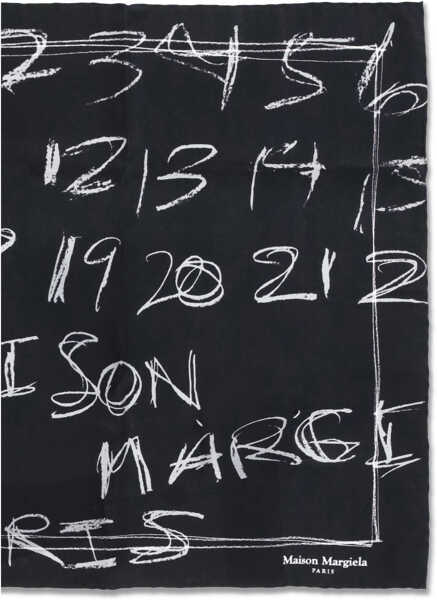 2 3 4 5 6
12 13 14 15
19 20 21 2
I SON
MARGI
RIS
Maison Margiela
PARIS